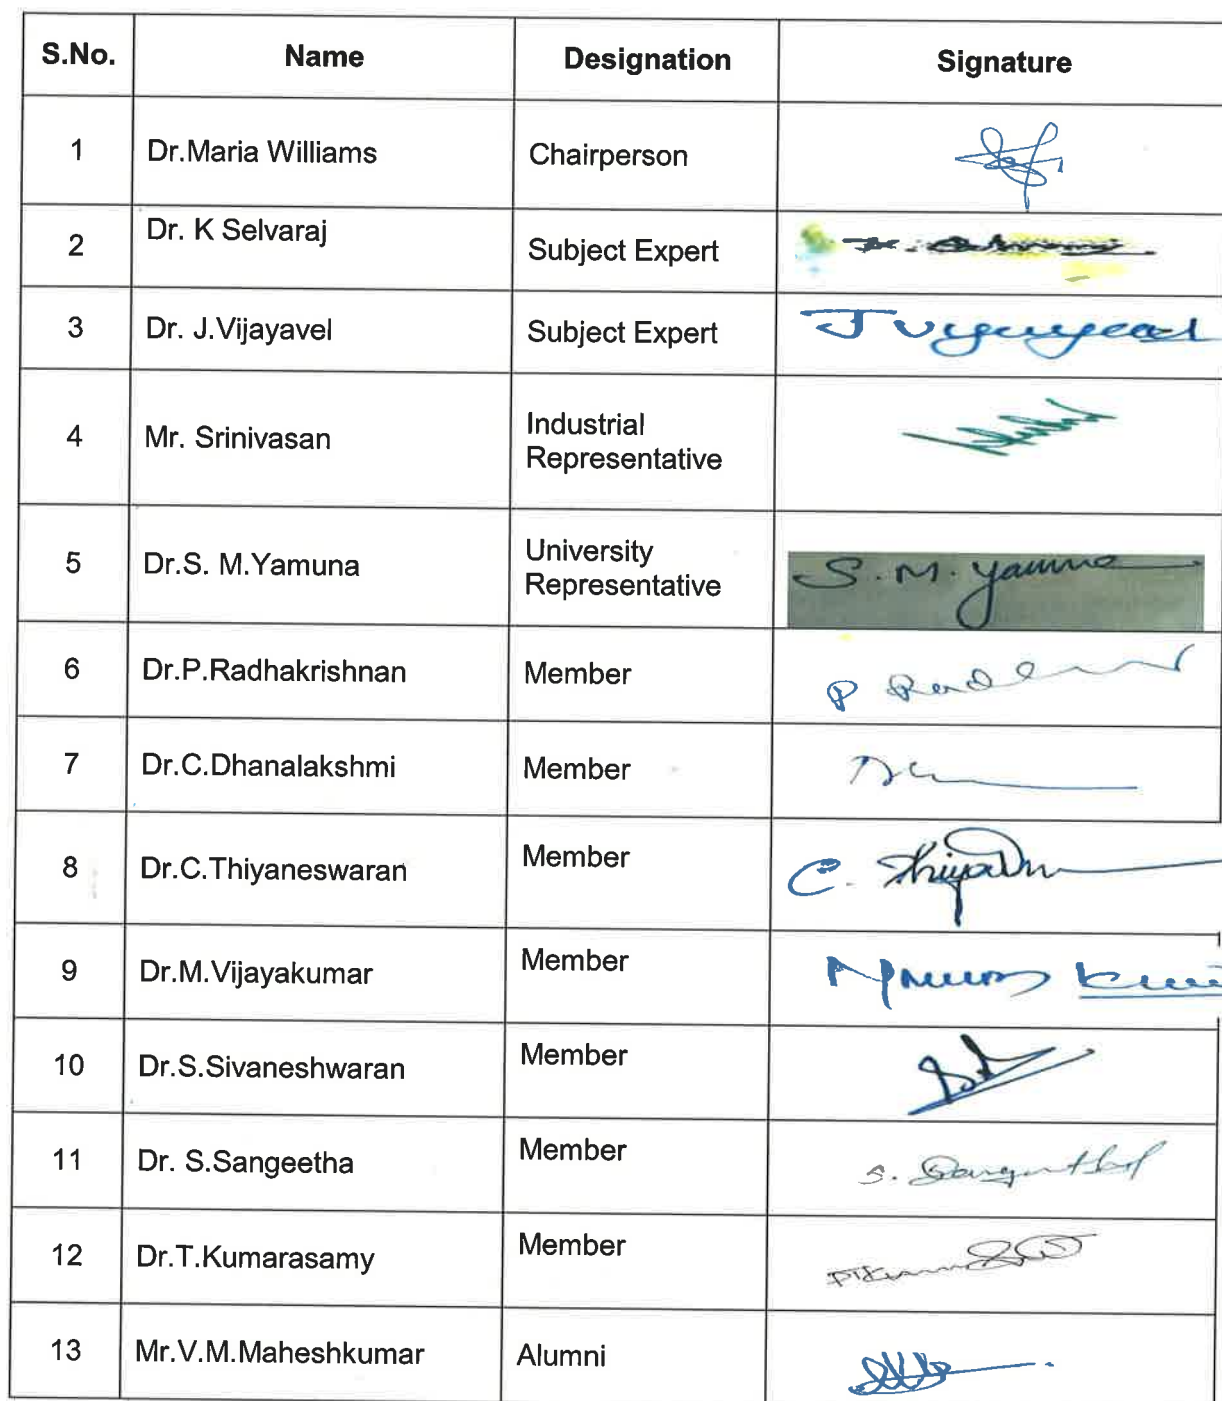 S.No. Name Designation Signature
1 Dr.Maria Williams Chairperson
2 Dr. K Selvaraj Subject Expert
3 Dr. J.Vijayavel Subject Expert
4 Mr. Srinivasan Industrial
Representative
5 Dr.S. M.Yamuna University
Representative S.M. Yamuna
6 Dr.P.Radhakrishnan Member
7 Dr.C.Dhanalakshmi Member
8 Dr.C.Thiyaneswaran Member
9 Dr.M.Vijayakumar Member
10 Dr.S.Sivaneshwaran Member
11 Dr. S.Sangeetha Member
12 Dr.T.Kumarasamy Member
13 Mr.V.M.Maheshkumar Alumni